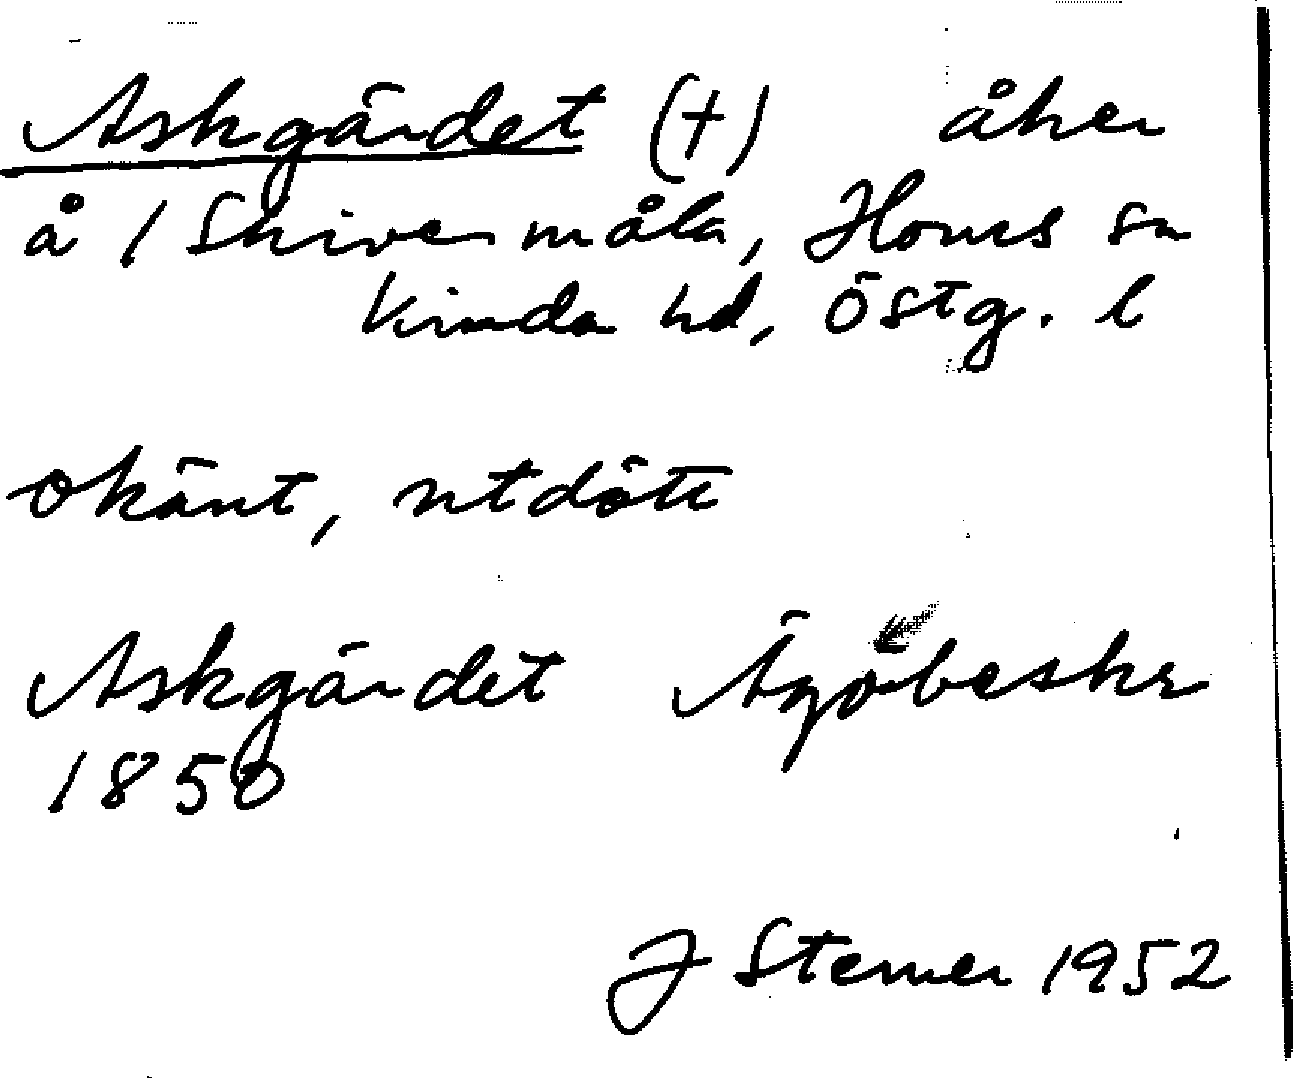 Askgärdet (†) åker
å 1 Skivermåla, Horns sn
Kinda hd, Östg. l
okänt, utdött
Askgärdet Ägobeskr
1850
J Sterner 1952